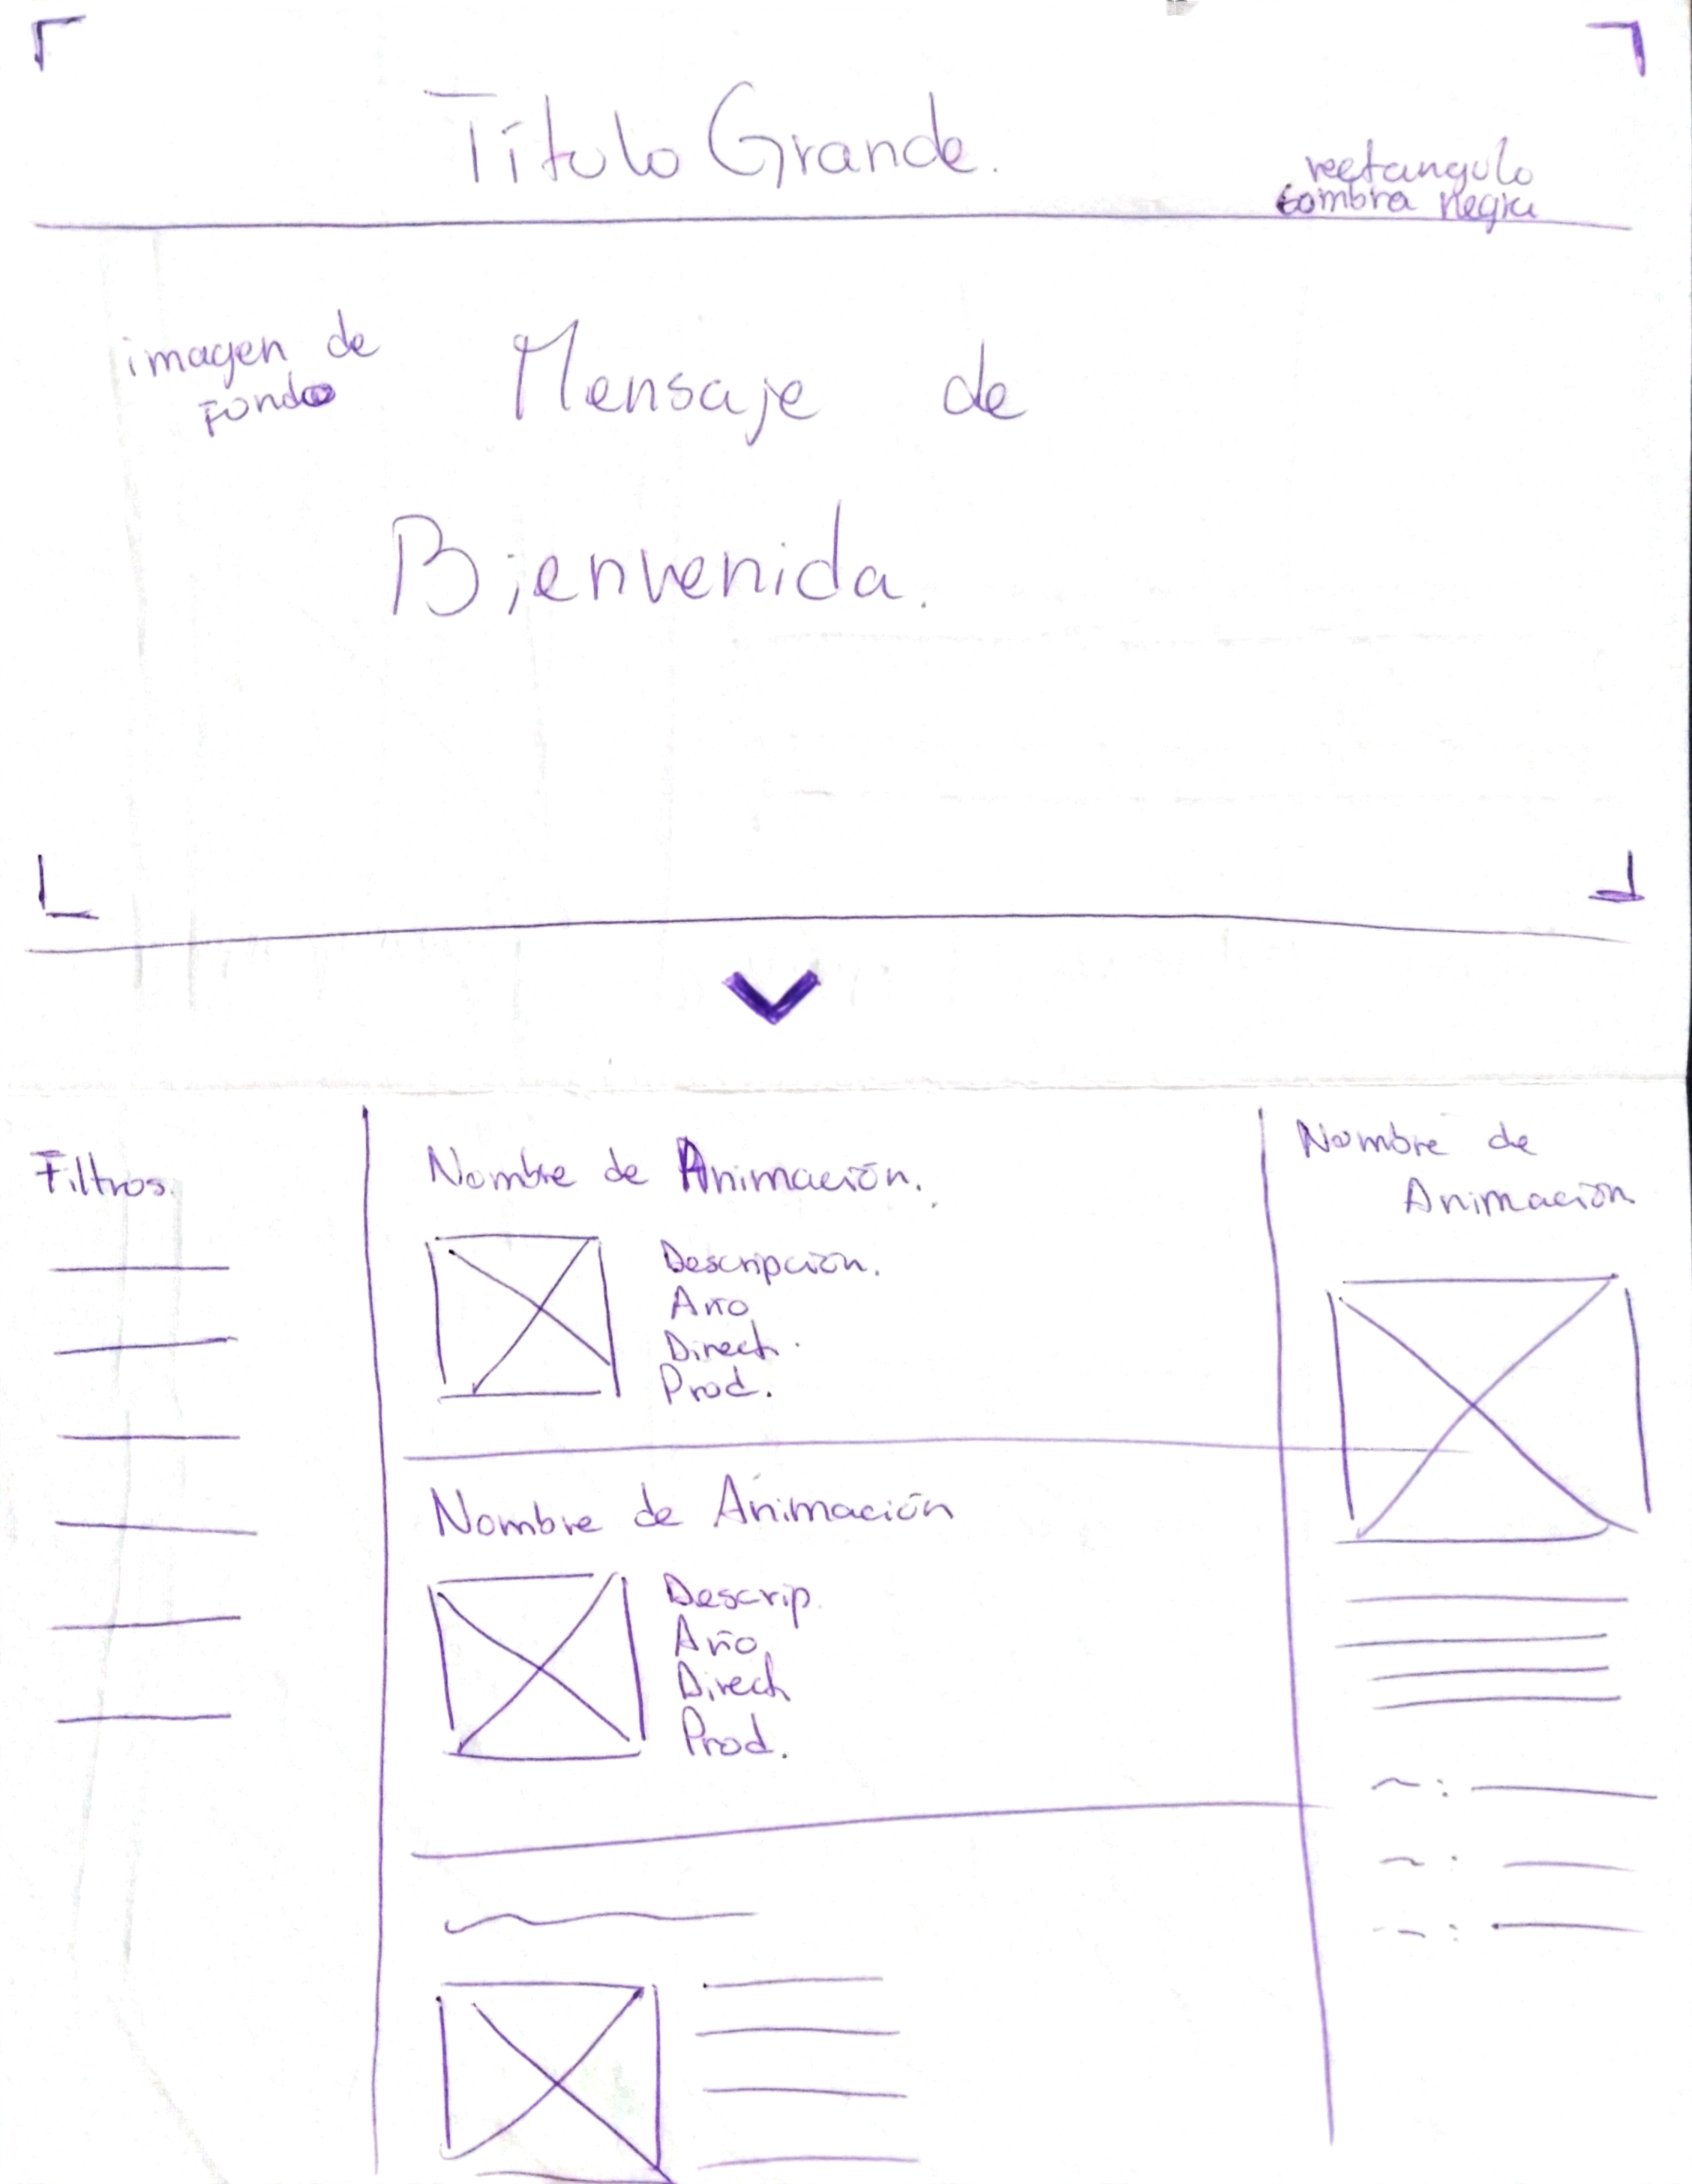 Título Grande.
rectangulo
sombra negra
imagen de
Fondo
Mensaje de
Bienvenida.
Filtros.
Nombre de Animación.
Descripción.
Año
Direct.
Prod.
Nombre de Animación
Descrip.
Año
Direct
Prod.
Nombre de
Animación